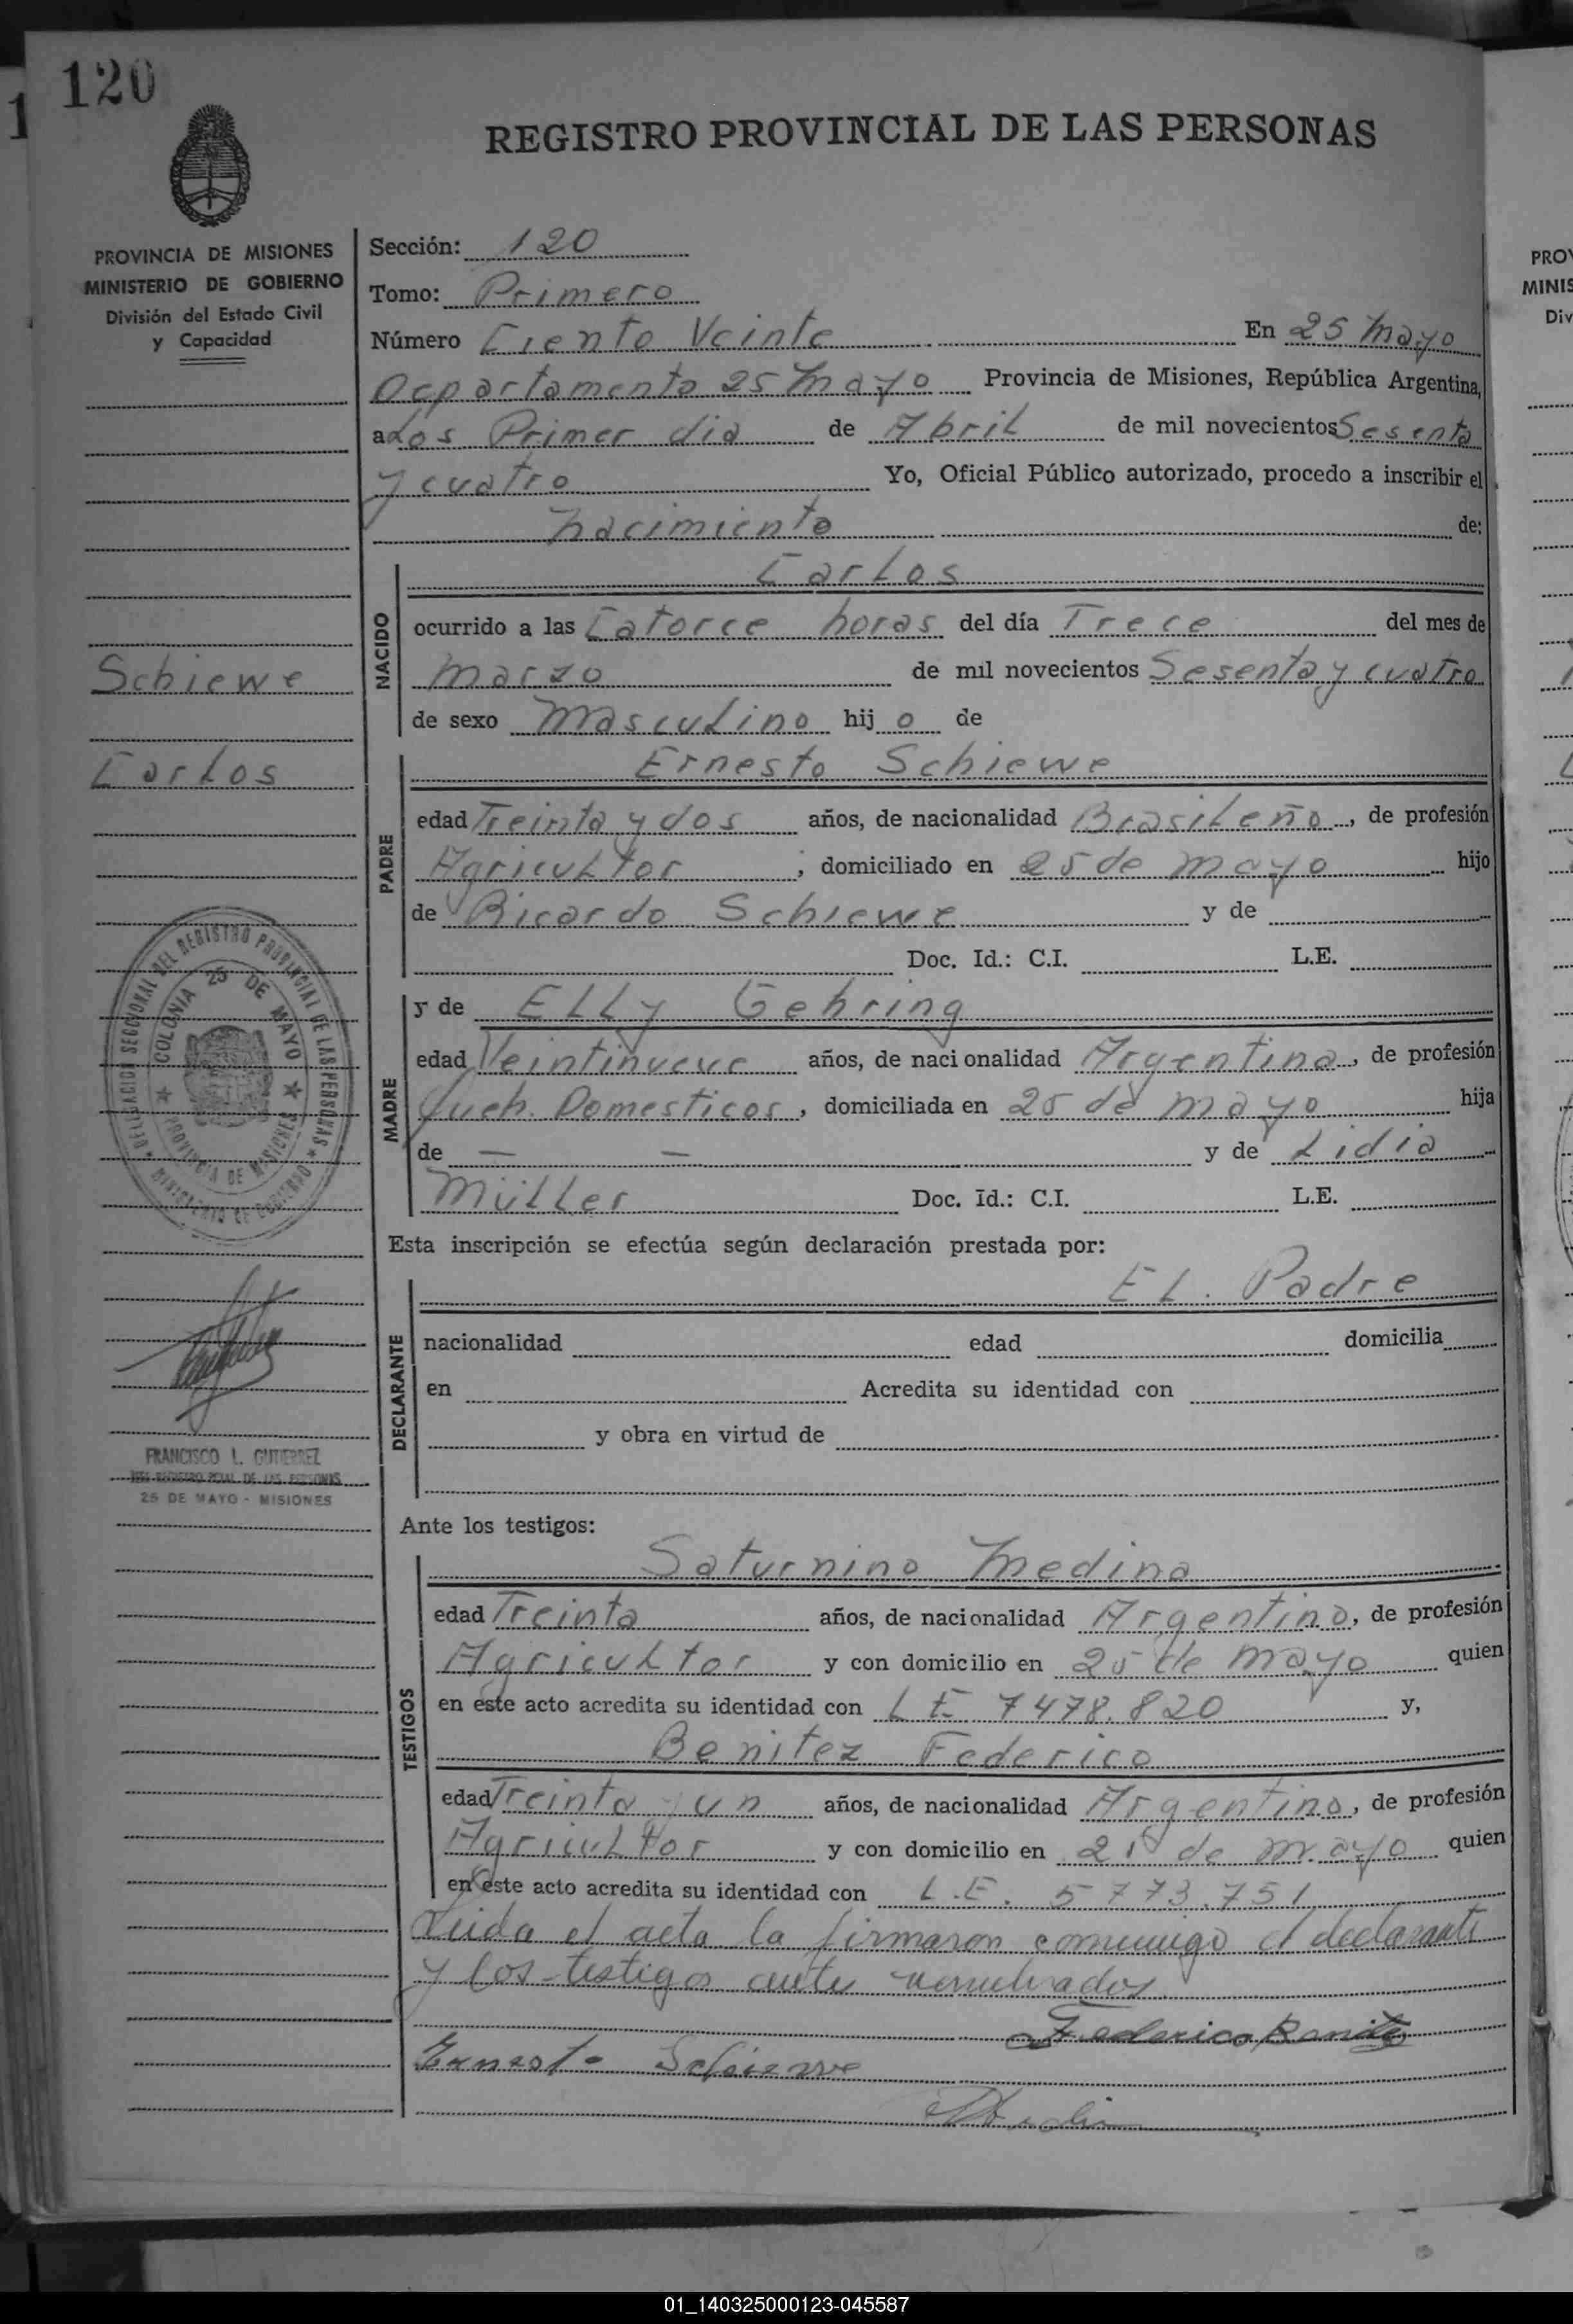 120
REGISTRO PROVINCIAL DE LAS PERSONAS
PROVINCIA DE MISIONES
MINISTERIO DE GOBIERNO
División del Estado Civil
y Capacidad
Sección: 120
Tomo: Primero
Número Ciento Veinte En 25 Mayo
Departamento 25 Mayo Provincia de Misiones, República Argentina,
a Los Primer dia de Abril de mil novecientos Sesenta
y cuatro Yo, Oficial Público autorizado, procedo a inscribir el
nacimiento de:
Carlos
NACIDO
ocurrido a las Catorce horas del día Trece del mes de
Marzo de mil novecientos Sesenta y cuatro
de sexo Masculino hijo de
Schiewe
Carlos
PADRE
Ernesto Schiewe
edad Treinta y dos años, de nacionalidad Brasileño, de profesión
Agricultor; domiciliado en 25 de Mayo hijo
de Ricardo Schiewe y de
Doc. Id.: C.I. L.E.
MADRE
y de Elly Gehring
edad Veintinueve años, de nacionalidad Argentina, de profesión
Queh. Domesticos, domiciliada en 25 de Mayo hija
de — — y de Lidia
Müller Doc. Id.: C.I. L.E.
DELEGACION SECCIONAL DEL REGISTRO PROVINCIAL DE LAS PERSONAS
COLONIA 25 DE MAYO
PROVINCIA DE MISIONES
MINISTERIO DE GOBIERNO
Esta inscripción se efectúa según declaración prestada por:
DECLARANTE
El. Padre
nacionalidad edad domicilia
en Acredita su identidad con
y obra en virtud de
FRANCISCO L. GUTIERREZ
JEFE REGISTRO PCIAL DE LAS PERSONAS
25 DE MAYO - MISIONES
Ante los testigos:
TESTIGOS
Saturnino Medina
edad Treinta años, de nacionalidad Argentino, de profesión
Agricultor y con domicilio en 25 de Mayo quien
en este acto acredita su identidad con L E 7478.820 y,
Benitez Federico
edad Treinta y un años, de nacionalidad Argentino, de profesión
Agricultor y con domicilio en 25 de Mayo quien
en este acto acredita su identidad con L.E. 5773.751
Leida el acta la firmaron conmigo el declarante
y los testigos ante nombrados
Federico Benitez
Ernesto Schiewe
01_140325000123-045587